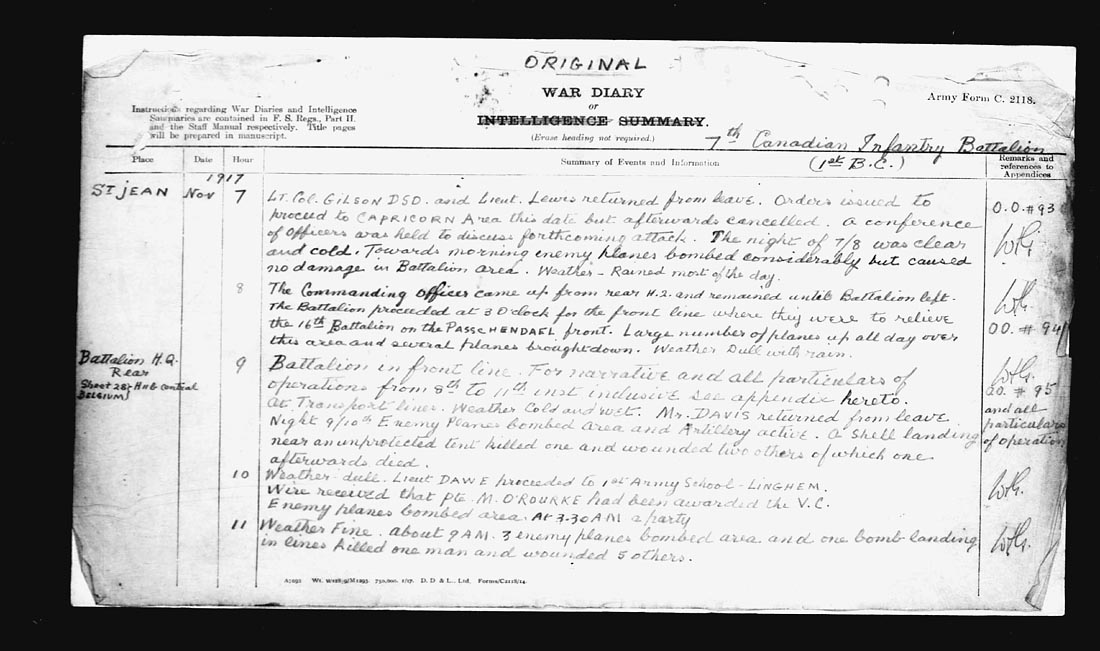 ORIGINAL
WAR DIARY
or
INTELLIGENCE SUMMARY.
(Erase heading not required.)
Army Form C. 2118.
Instructions regarding War Diaries and Intelligence
Summaries are contained in F. S. Regs., Part II.
and the Staff Manual respectively. Title pages
will be prepared in manuscript.
7th Canadian Infantry Battalion
(1st B.C.)
Place Date Hour Summary of Events and Information Remarks and references to Appendices
1917
ST JEAN Nov 7 Lt. Col. GILSON DSO. and Lieut. Lewis returned from leave. Orders issued to
proceed to CAPRICORN Area this date but afterwards cancelled. A conference O.O. #93
of Officers was held to discuss forthcoming attack. The night of 7/8 was clear
and cold. Towards morning enemy planes bombed considerably but caused
no damage in Battalion area. Weather - Rained most of the day.
8 The Commanding Officer came up from rear H.Q. and remained until Battalion left.
The Battalion proceeded at 3 O'clock for the front line where they were to relieve
the 16th Battalion on the PASSCHENDAEL front. Large number of planes up all day over OO. # 94
this area and several planes brought down. Weather Dull with rain.
Battalion H.Q. 9 Battalion in front line. For narrative and all particulars of
Rear
Sheet 28 central operations from 8th to 11th inst inclusive see appendix hereto. OO. # 95
BELGIUM At Transport lines. Weather Cold and wet. Mr. DAVIS returned from leave and all
Night 9/10th Enemy Planes bombed Area and Artillery active. A shell landing particulars
near an unprotected tent killed one and wounded two others of which one of operation
afterwards died.
10 Weather - dull. Lieut DAWE proceeded to 1st Army School - LINGHEM.
Wire received that Pte. M. O'ROURKE had been awarded the V.C.
Enemy planes bombed area. At 3.30 AM a party
11 Weather Fine. About 9 AM. 3 enemy planes bombed area and one bomb landing
in lines killed one man and wounded 5 others.
D. D & L., Ltd. Forms/C2118/14.